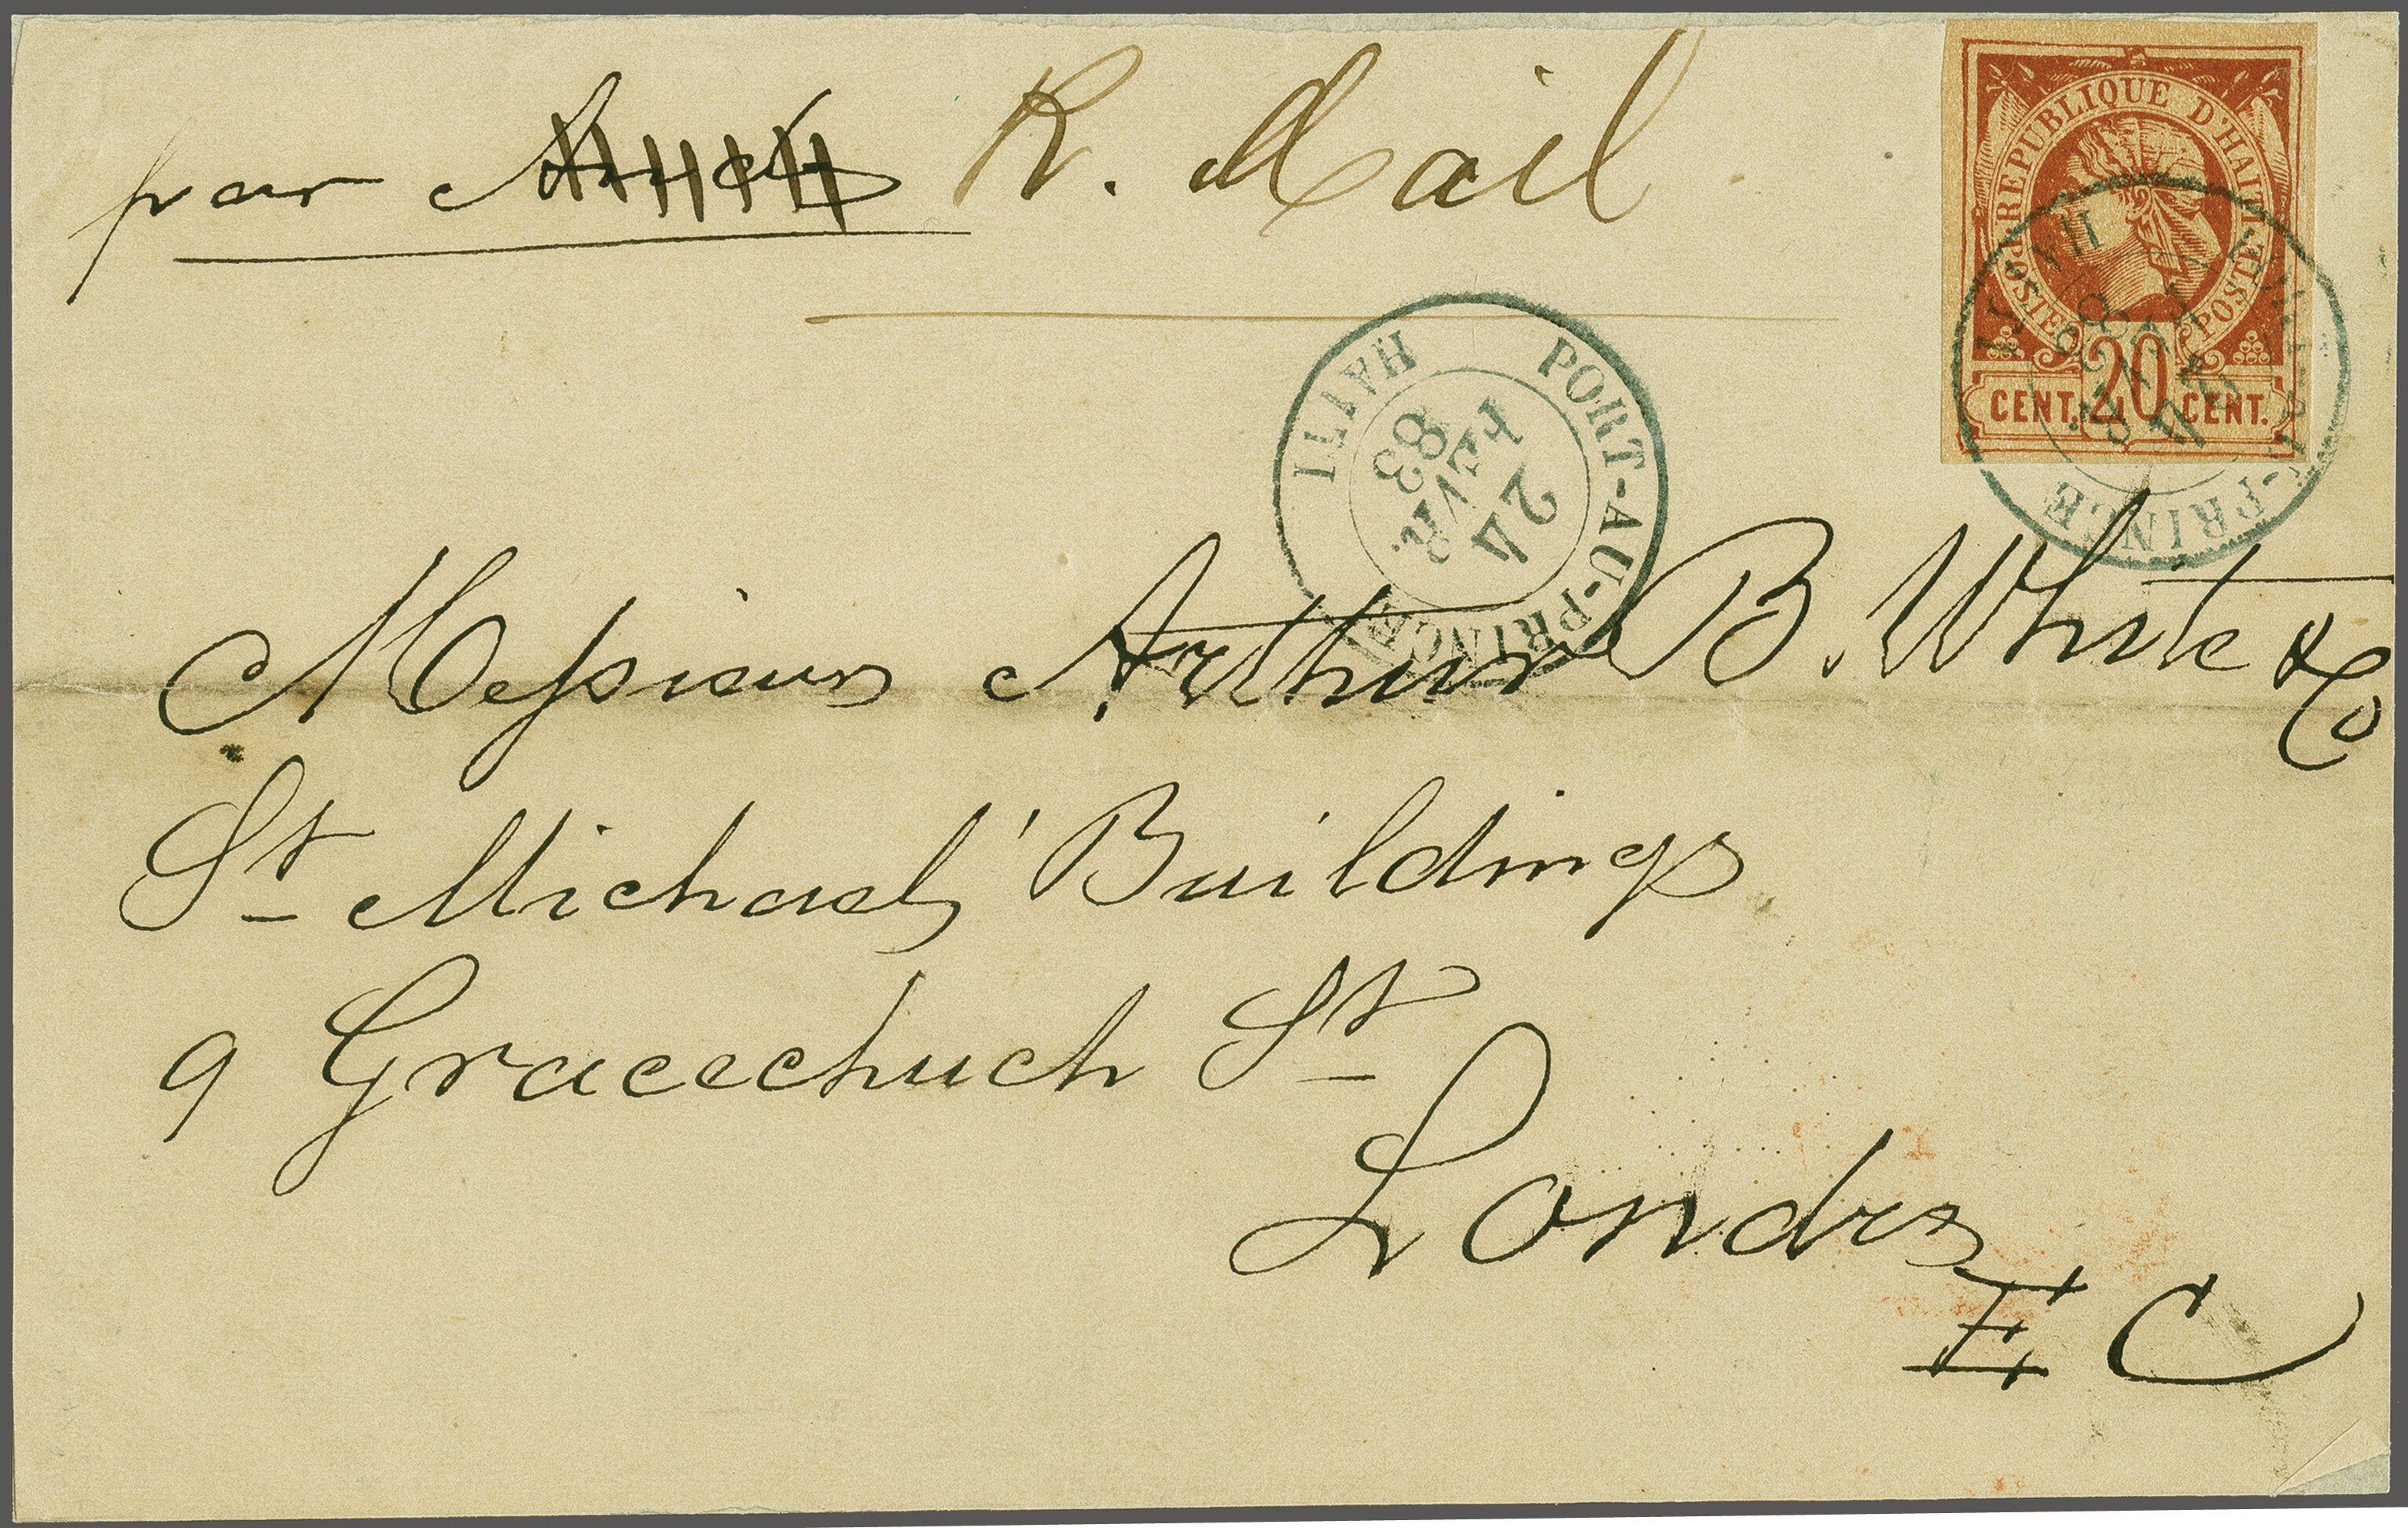 par R. Mail
REPUBLIQUE D'HAITI
POSTES POSTES
CENT. 20 CENT.
HAITI PORT-AU-PRINCE
24
FEVR.
83
Messieurs Arthur B. White & Co
St Michael's Buildings
9 Gracechuch St
Londres
E C